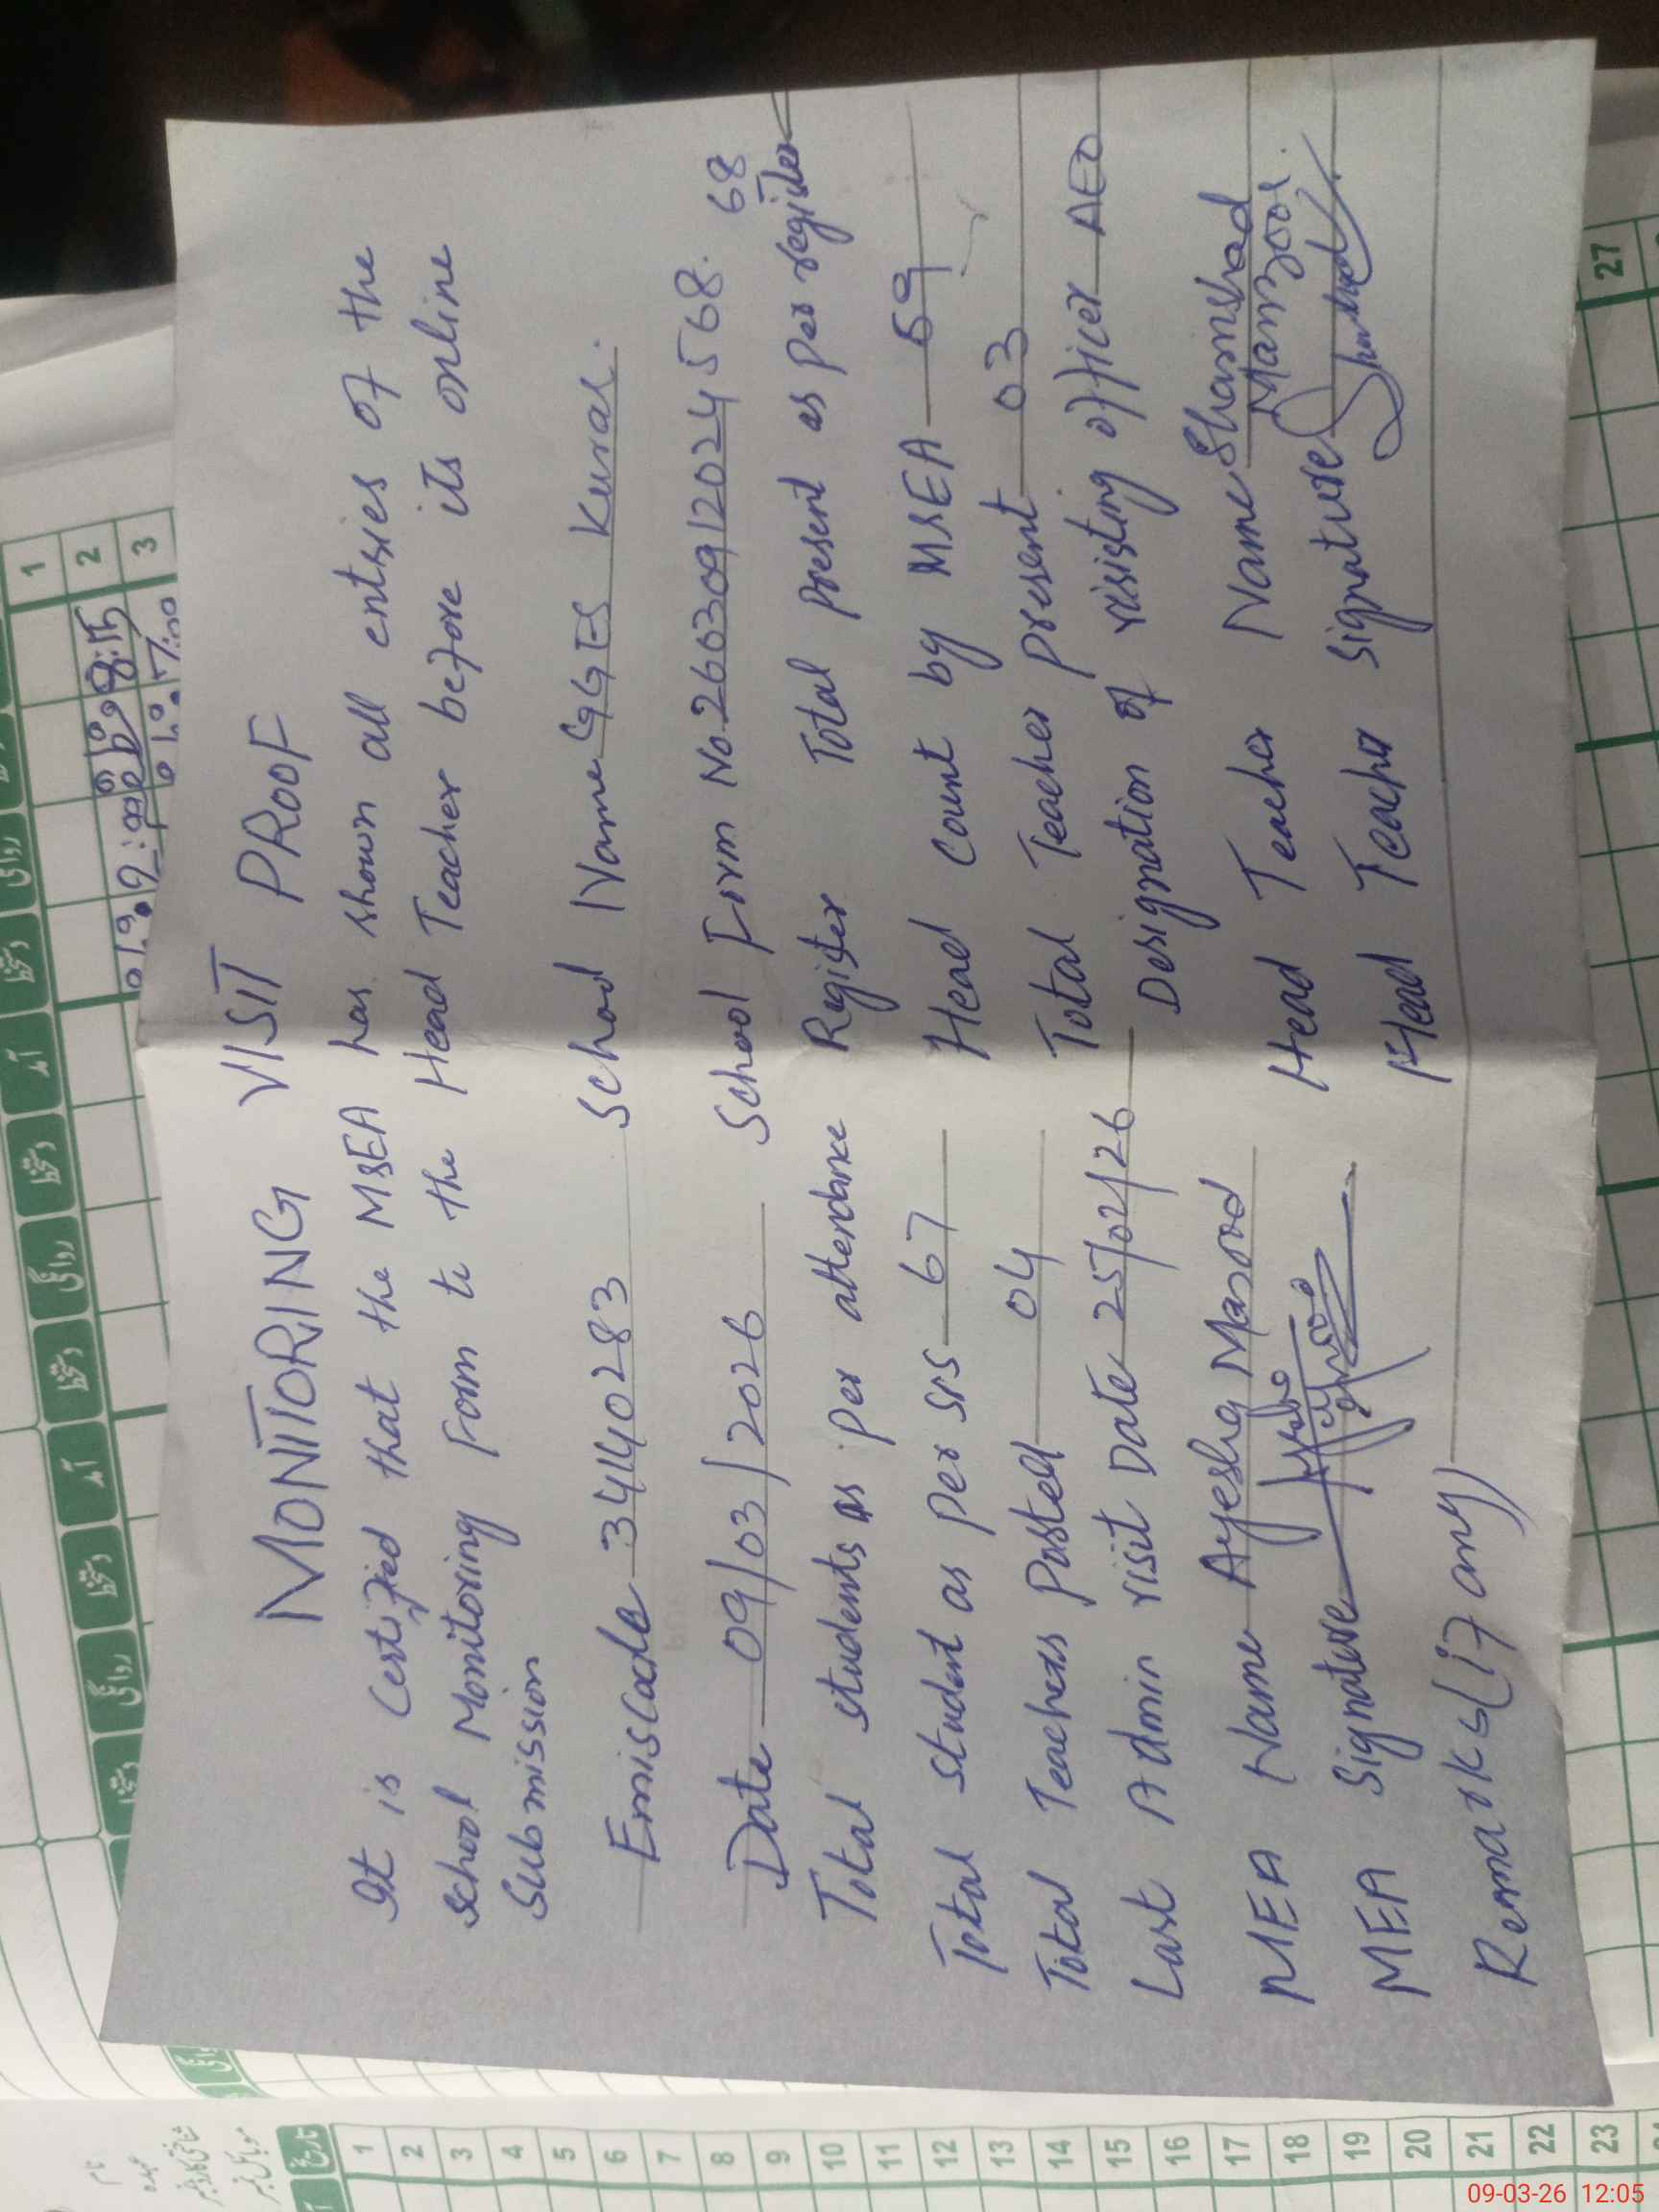 MONITORING VISIT PROOF
It is Certified that the MSEA has shown all entries of the
School Monitoring Form to the Head Teacher before its online
Submission
Emiscode 34140283 School Name GGES Kuras.
Date 09/03/2026 School Form No. 26030912024568.
Total students as per attendance Register 68 Total present as per register
Total Student as per SIS 67 Head Count by MSEA 59
Total Teachers Posted 04 Total Teacher present 03
Last Admin visit Date 25/02/26 Designation of visiting officer AEO
MEA Name Ayesha Masood Head Teacher Name Shamshad Manzoor.
MEA Signature Head Teacher Signature
Remarks (if any)
1
2
3
8:15
27
تاریخ
1
2
3
4
5
6
7
8
9
10
11
12
13
14
15
16
17
18
19
20
21
22
23
09-03-26 12:05